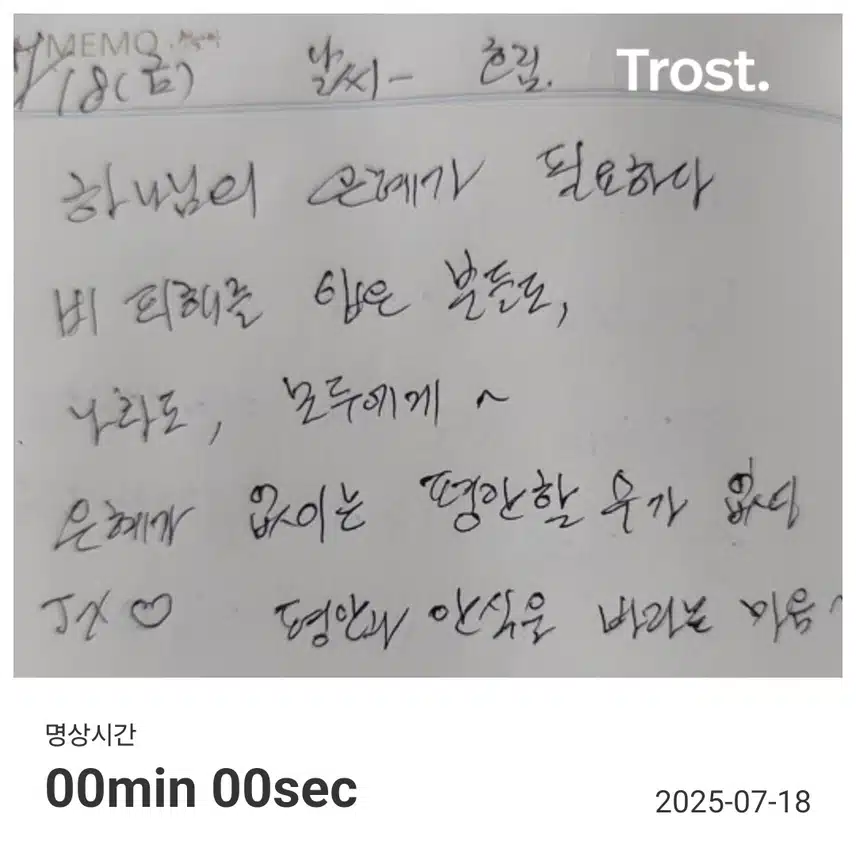 MEMO
7/18(금) 날씨- 흐림.
Trost.
하나님의 은혜가 필요하다
비 피해를 입은 분들도,
나라도, 모두에게 ~
은혜가 없이는 평안할 수가 없다
JX ♡ 평안과 안식을 바라는 마음~
명상시간
00min 00sec
2025-07-18